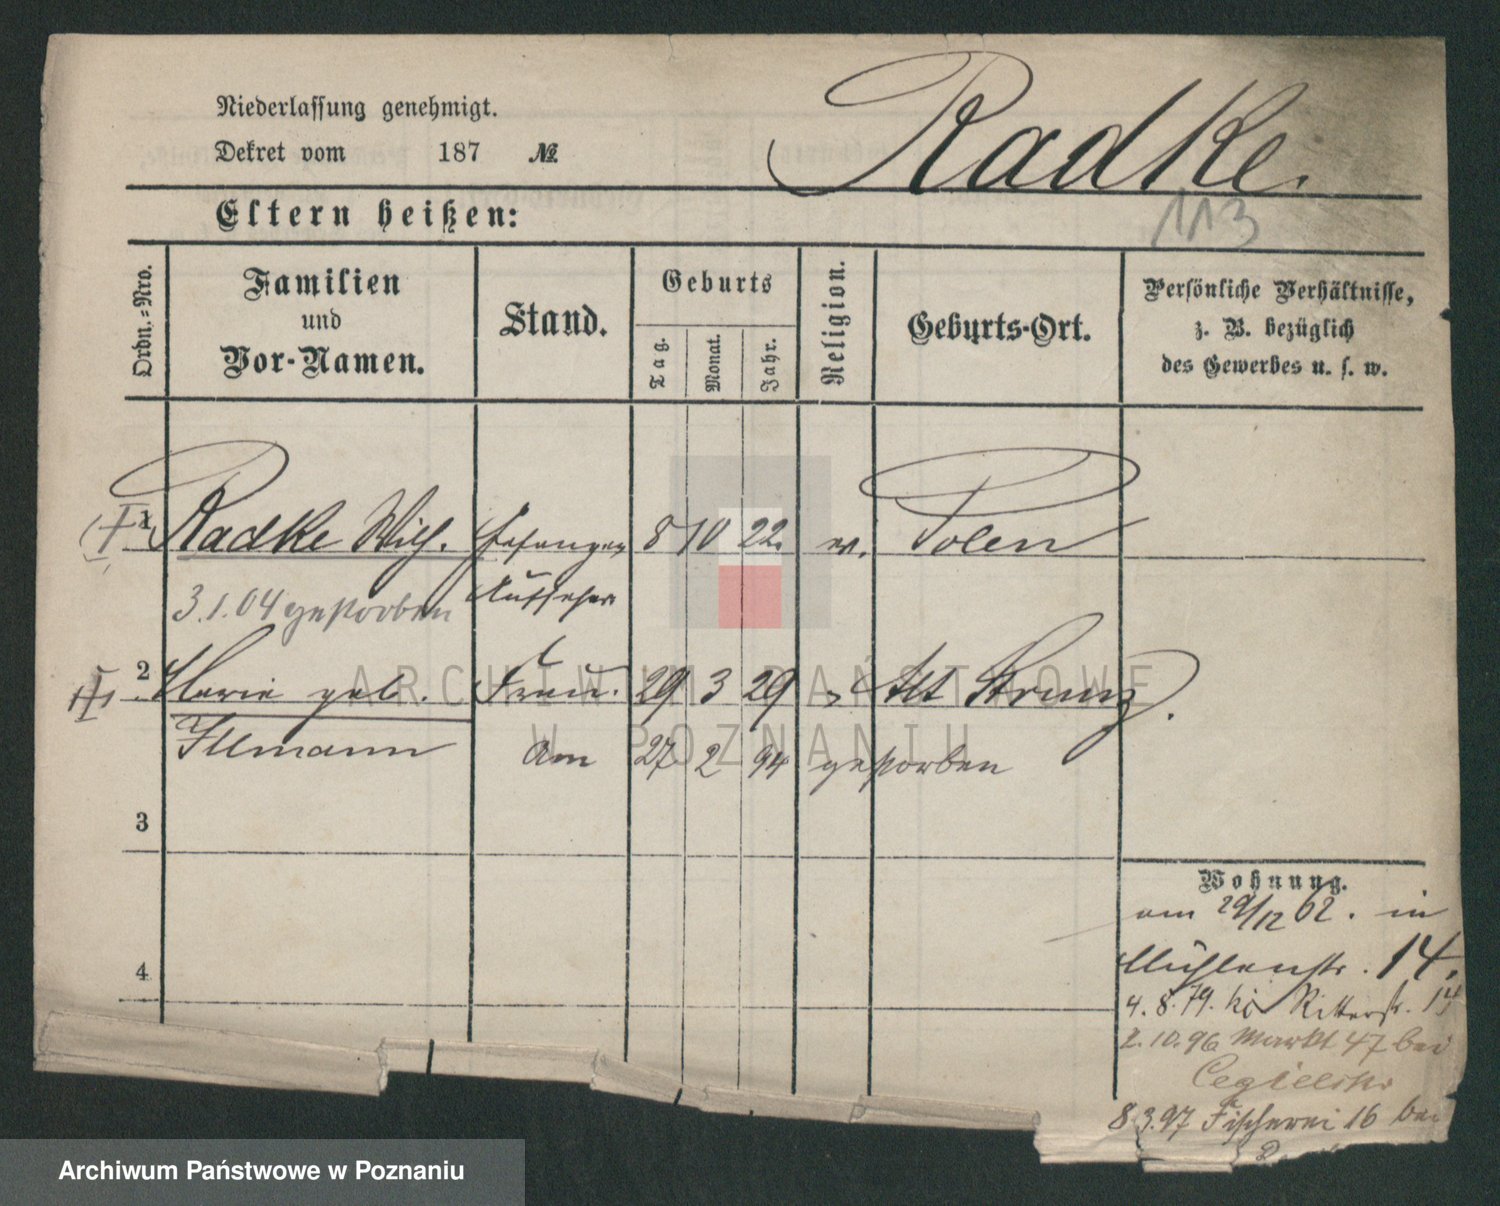 Niederlassung genehmigt.
Radke.
Dekret vom 187 №
113
Eltern heißen:
Ordn.-Nro.
Familien
und
Vor-Namen.
Stand.
Geburts
Tag.
Monat.
Jahr.
Religion.
Geburts-Ort.
Persönliche Verhältnisse,
z. B. bezüglich
des Gewerbes u. s. w.
1 Radke Wilh. Gefangen 8 10 22. ev. Polen
Aufseher
3.1.04 gestorben
2 Marie geb. Frau. 29 3 29 Alt Strunz.
Illmann am 27 2 94 gestorben
3
4
Wohnung.
am 29/12 62. in
Mühlenstr. 14.
4.8.79. Ritterstr. 14
2.10.96 Markt 47 bei
Cegielski
8.3.97 Fischerei 16 bei
ARCHIWUM PAŃSTWOWE
W POZNANIU
Archiwum Państwowe w Poznaniu